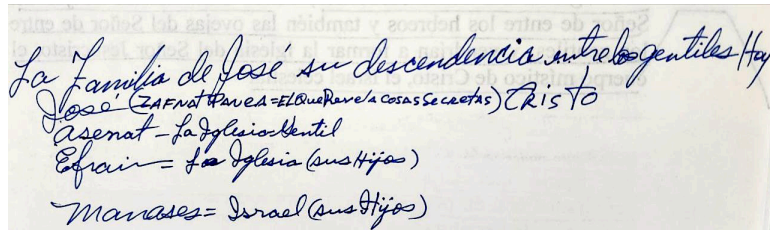 La Familia de José su descendencia entre los gentiles Hay
José (ZAFNAT PANEA = EL Que Revela COSAS SecReTAS) CRISTO
Asenat - La Iglesia Gentil
Efraín = La Iglesia (sus Hijos)
Manases = Israel (sus Hijos)